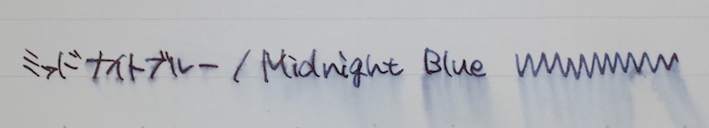 ミッドナイトブルー / Midnight Blue